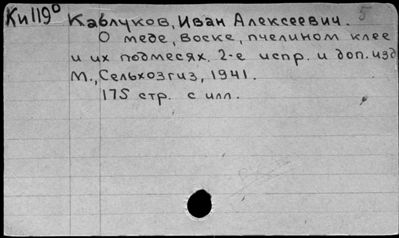 Ки119⁰ Каблуков, Иван Алексеевич. 5
О меде, воске, пчелином клее
и их подмесях. 2-е испр. и доп. изд
М., Сельхозгиз, 1941.
175 стр. с илл.